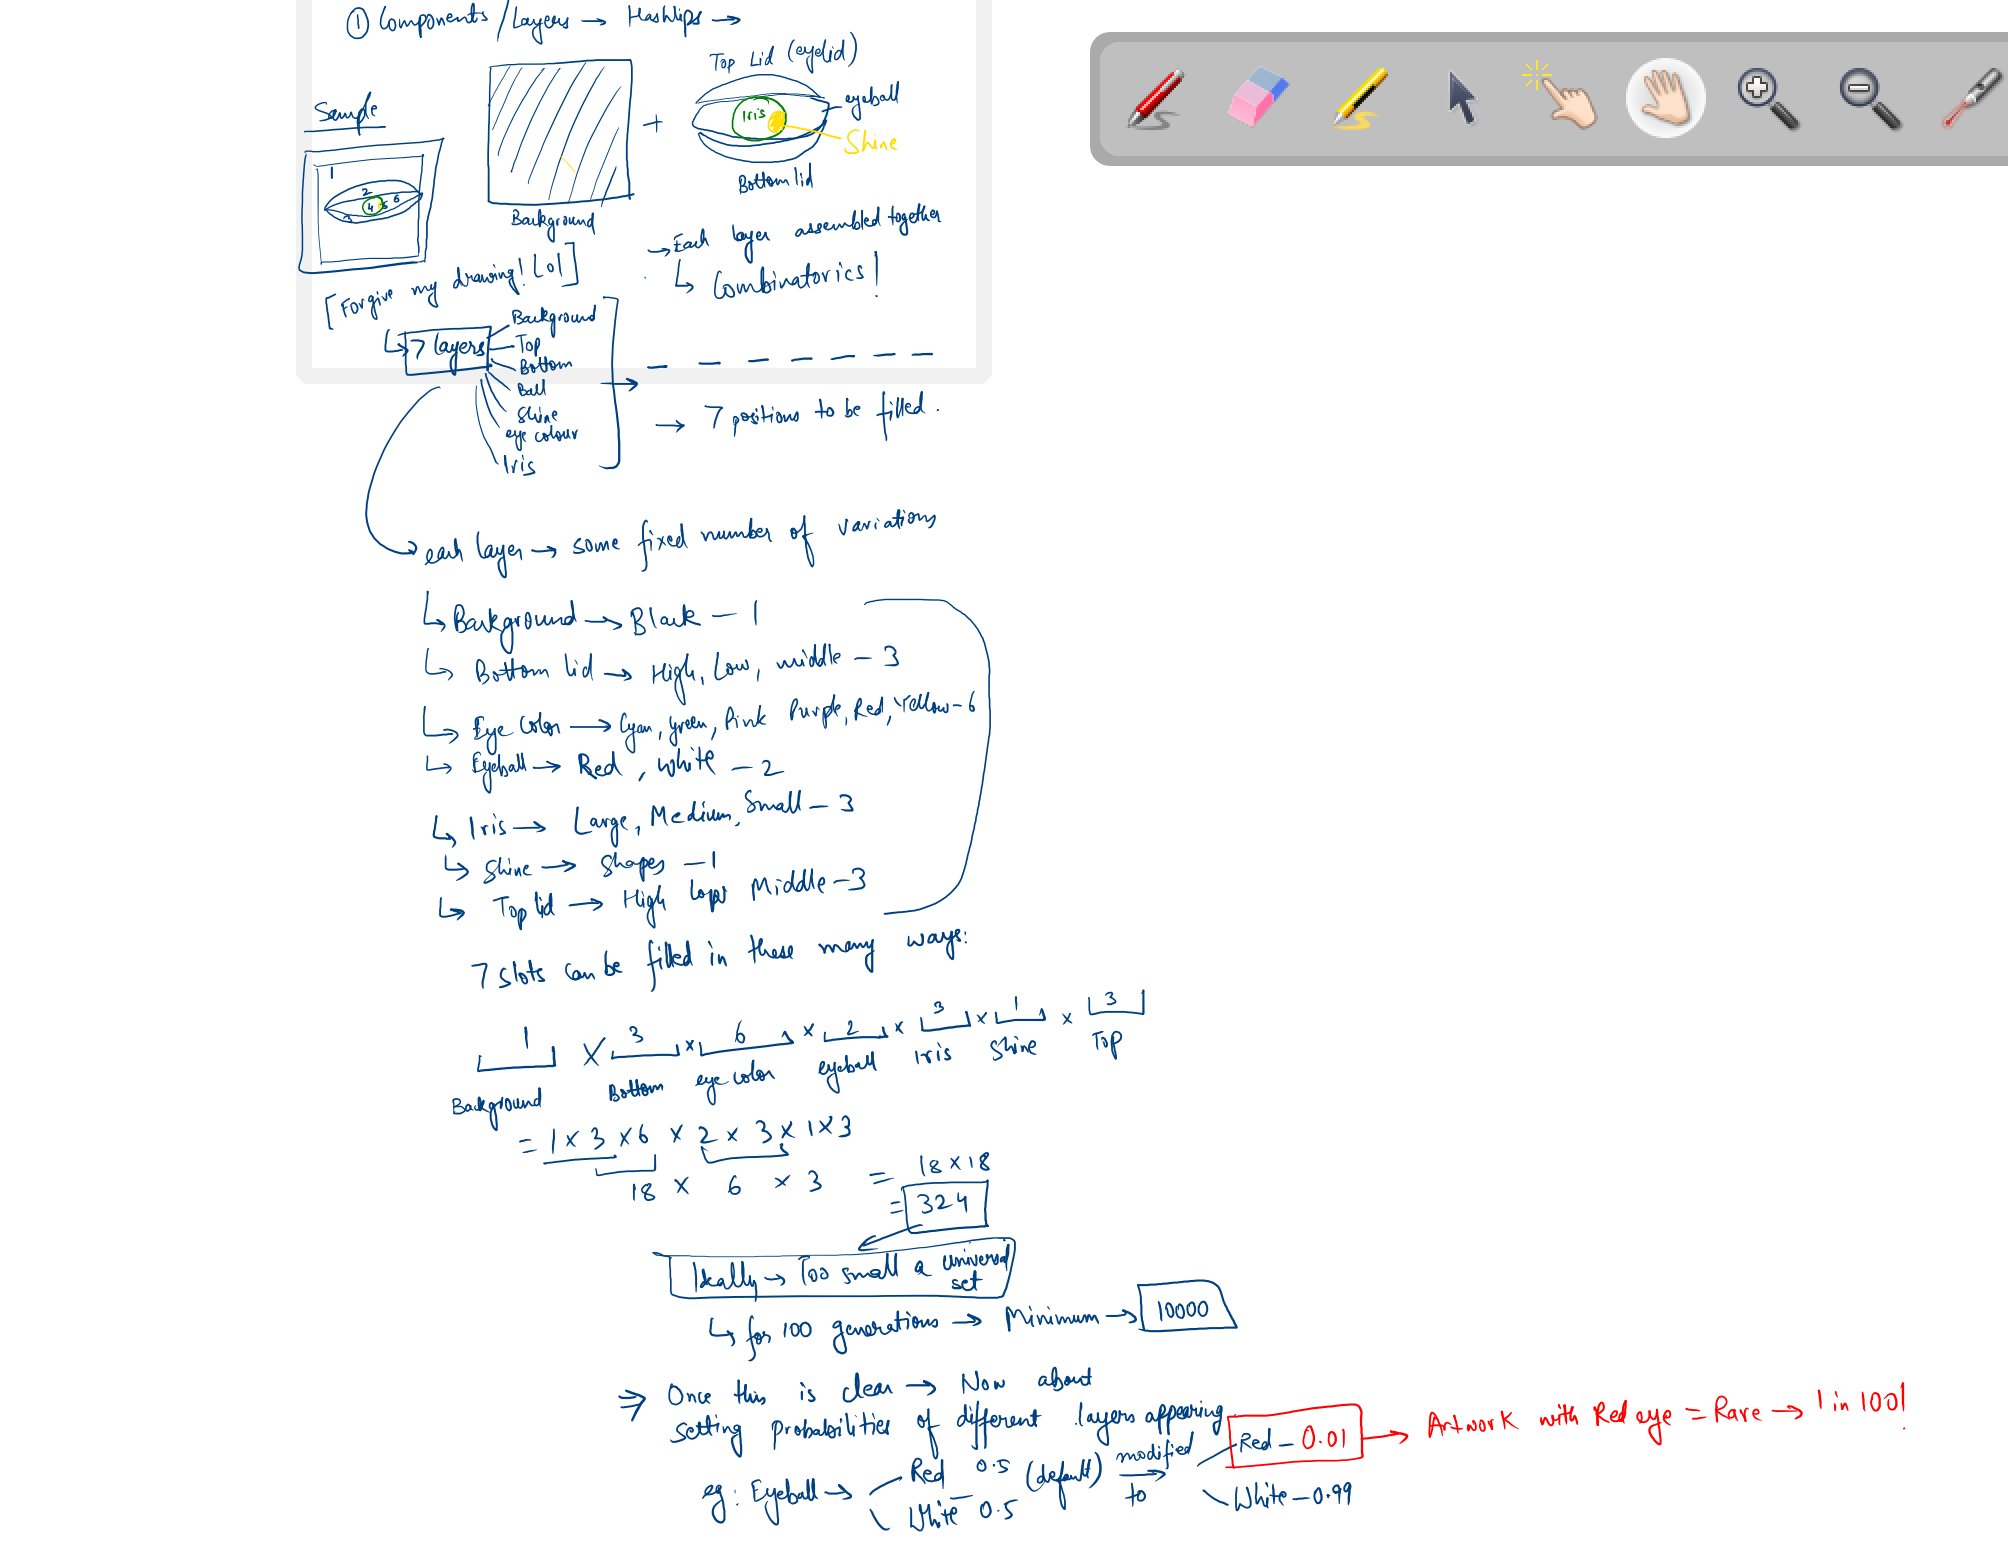 ① Components/Layers → Hashlips →
Top Lid (eyelid)
Sample
Iris
eyeball
Shine
+
Bottom lid
1
2
3
4
5
6
Background
→ Each layer assembled together
↳ Combinatorics!
[Forgive my drawing! Lol]
↳ 7 layers
Background
Top
Bottom
Ball
Shine
eye colour
Iris
→ _ _ _ _ _ _ _
→ 7 positions to be filled.
→ each layer → some fixed number of variations
↳ Background → Black - 1
↳ Bottom lid → High, Low, middle - 3
↳ Eye Color → Cyan, green, Pink Purple, Red, Yellow - 6
↳ Eyeball → Red, white - 2
↳ Iris → Large, Medium, Small - 3
↳ Shine → Shapes - 1
↳ Top lid → High Middle - 3
7 slots can be filled in these many ways:
1 × 3 × 6 × 2 × 3 × 1 × 3
Background Bottom eye color eyeball Iris Shine Top
= 1 × 3 × 6 × 2 × 3 × 1 × 3
18 × 6 × 3 = 18 × 18
= 324
Ideally → Too small a universal set
↳ for 100 generations → Minimum → 10000
⇒ Once this is clear → Now about
setting probabilities of different layers appearing
eg: Eyeball → Red 0.5 (default) modified to Red - 0.01 → Artwork with Red eye = Rare → 1 in 100!
White 0.5 White - 0.99